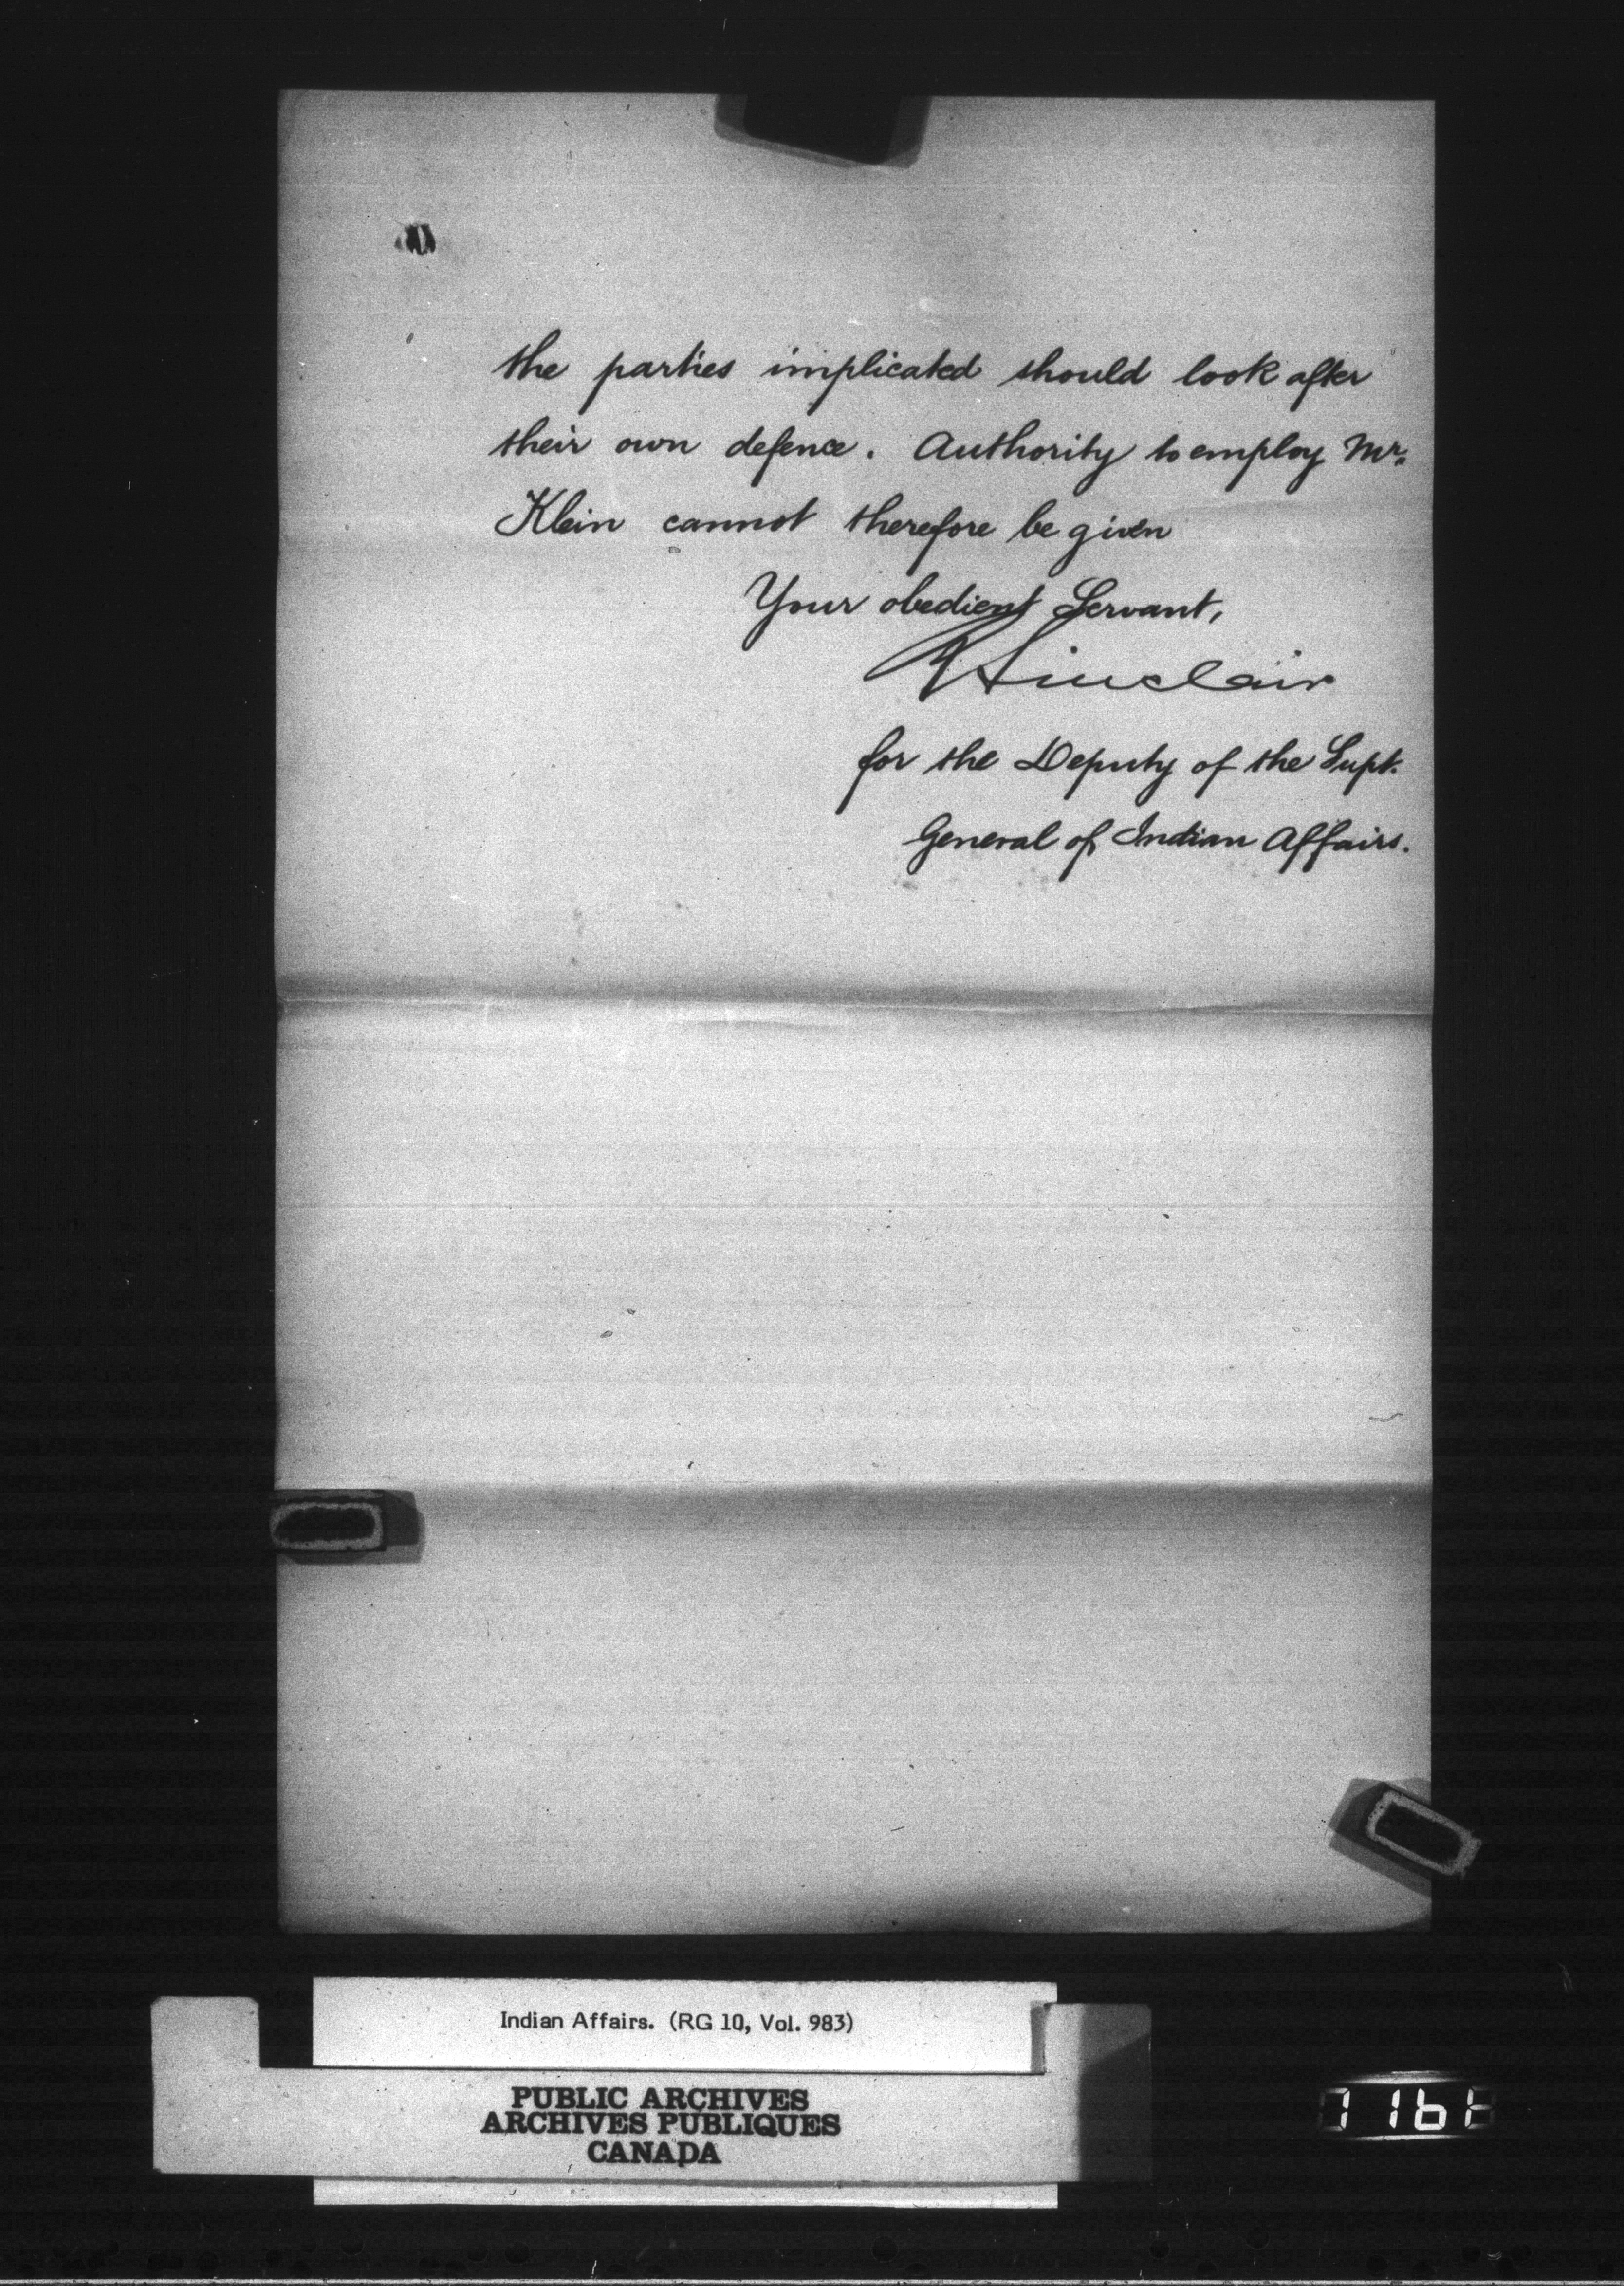 the parties implicated should look after
their own defence. Authority to employ Mr.
Klein cannot therefore be given
Your obedient Servant,
Sinclair
for the Deputy of the Supt.
General of Indian Affairs.
Indian Affairs. (RG 10, Vol. 983)
PUBLIC ARCHIVES
ARCHIVES PUBLIQUES
CANADA